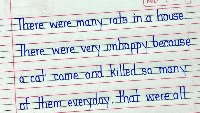 There were many rats in a house.
There were very unhappy because
a cat came and killed so many
of them everyday. that were all